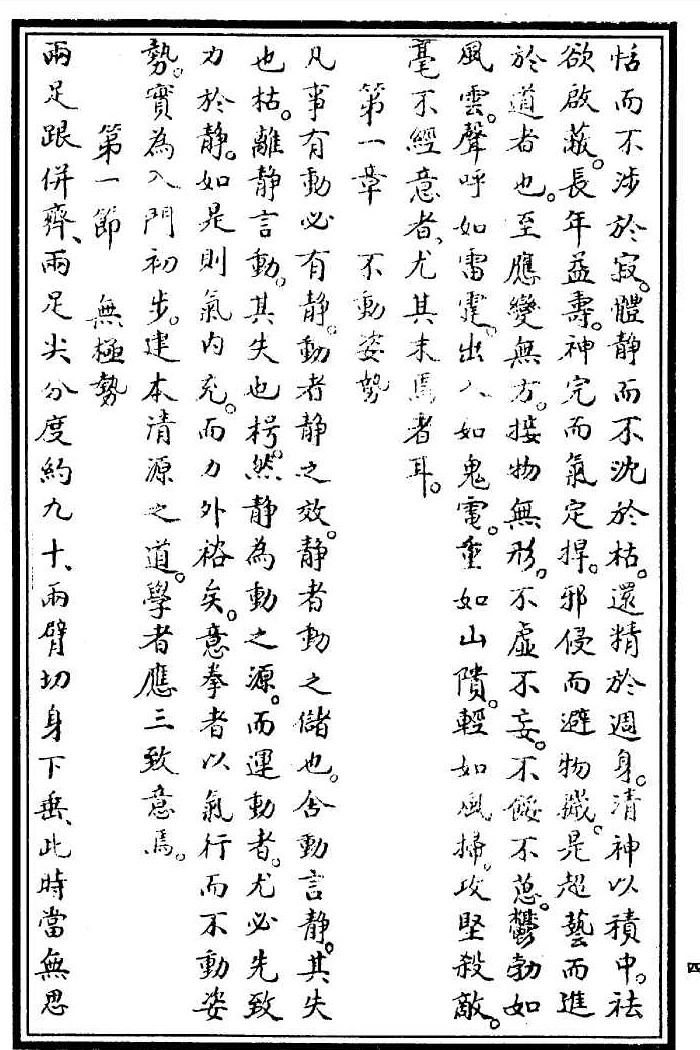 恬而不涉於寂。體静而不沈於枯。還精於週身。清神以積中。祛
欲啟蔽。長年益壽。神完而氣定捍。邪侵而避物㦰。是超藝而進
於道者也。至應變無方。接物無形。不虛不妄。不餒不葸。鬱勃如
風雲。聲呼如雷霆。出入如鬼電。重如山隤。輕如風掃。攻堅殺敵。
毫不經意者、尤其末焉者耳。
第一章　不動姿勢
凡事有動必有静。動者静之效。静者動之儲也。舍動言静。其失
也枯。離静言動。其失也枵。然静為動之源。而運動者。尤必先致
力於静。如是則氣内充。而力外裕矣。意拳者以氣行而不動姿
勢。實為入門初步。建本清源之道。學者應三致意焉。
第一節　無極勢
兩足跟併齊、兩足尖分度約九十、兩臂切身下垂、此時當無思
四